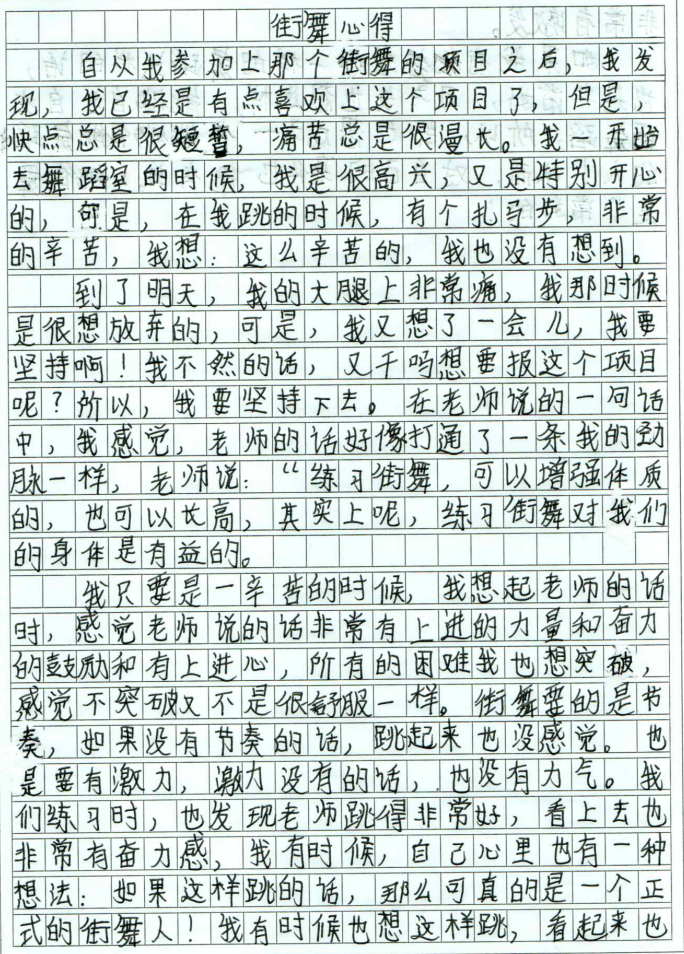 街舞心得
自从我参加上那个街舞的项目之后，我发
现，我已经是有点喜欢上这个项目了，但是，
快点总是很短暂，痛苦总是很漫长。我一开始
去舞蹈室的时候，我是很高兴，又是特别开心
的，可是，在我跳的时候，有个扎马步，非常
的辛苦，我想：这么辛苦的，我也没有想到。
到了明天，我的大腿上非常痛，我那时候
是很想放弃的，可是，我又想了一会儿，我要
坚持啊！我不然的话，又干吗想要报这个项目
呢？所以，我要坚持下去。在老师说的一句话
中，我感觉，老师的话好像打通了一条我的劲
脉一样，老师说：“练习街舞，可以增强体质
的，也可以长高，其实上呢，练习街舞对我们
的身体是有益的。
我只要是一辛苦的时候，我想起老师的话
时，感觉老师说的话非常有上进的力量和奋力
的鼓励和有上进心，所有的困难我也想突破，
感觉不突破又不是很舒服一样。街舞要的是节
奏，如果没有节奏的话，跳起来也没感觉。也
是要有激力，激力没有的话，也没有力气。我
们练习时，也发现老师跳得非常好，看上去也
非常有奋力感，我有时候，自己心里也有一种
想法：如果这样跳的话，那么可真的是一个正
式的街舞人！我有时候也想这样跳，看起来也